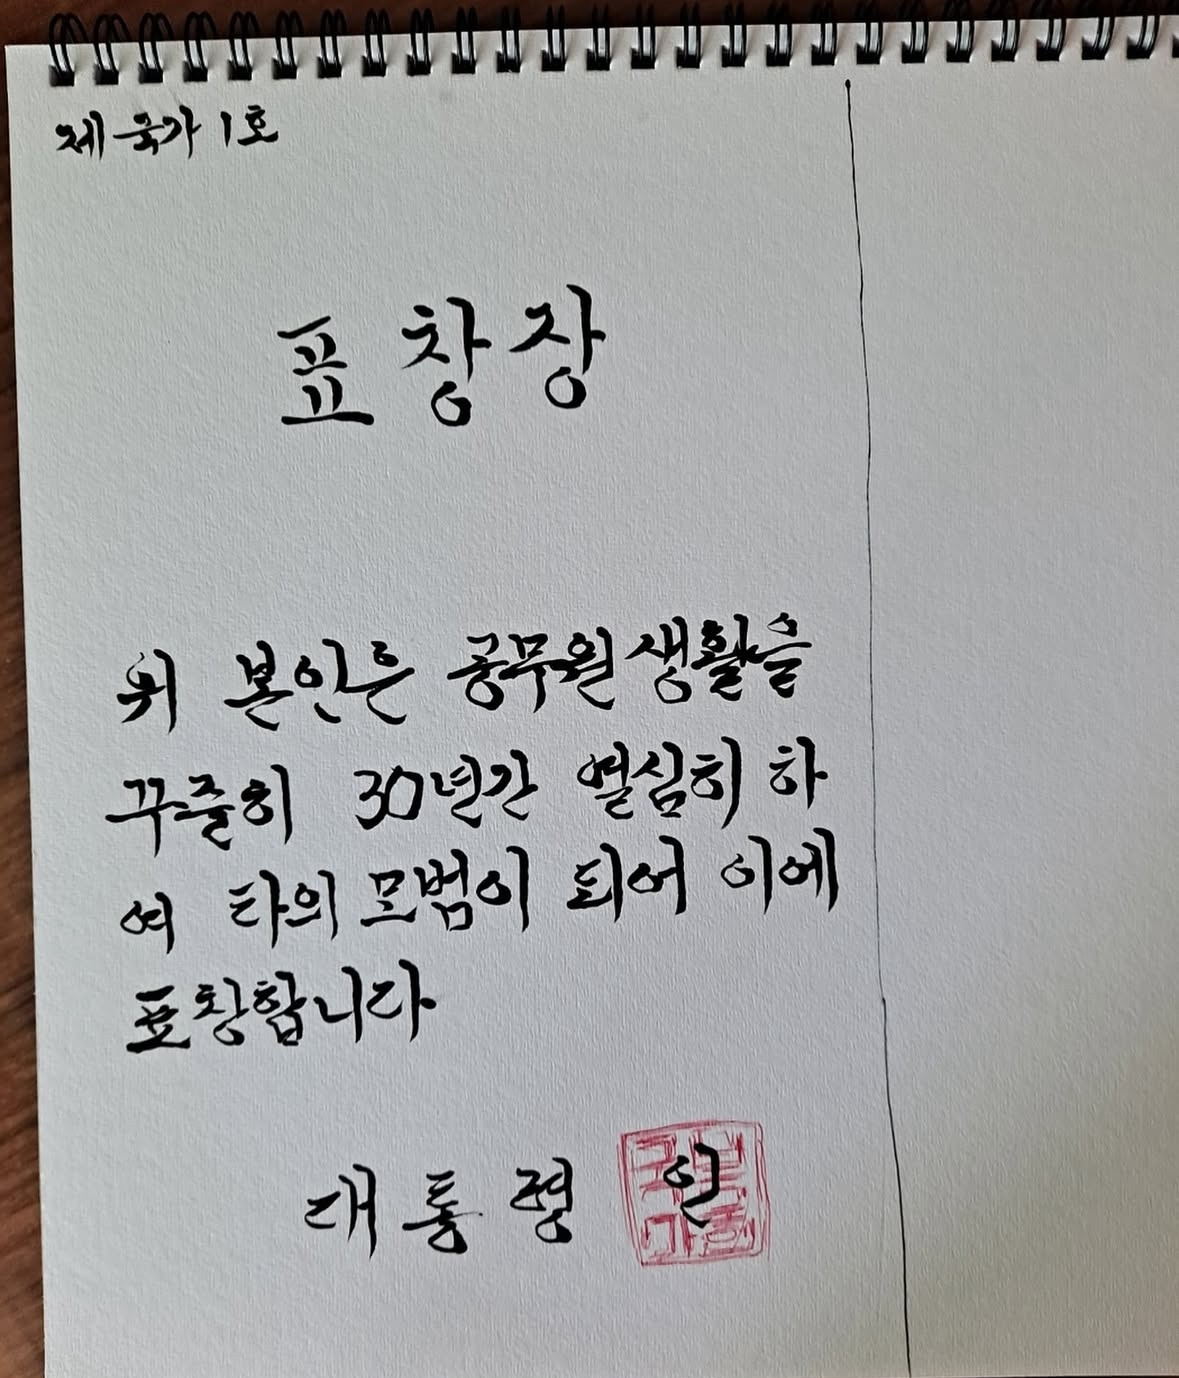 제 국가 1호
표창장
위 본인은 공무원 생활을
꾸준히 30년간 열심히 하
여 타의 모범이 되어 이에
표창합니다
대통령 인